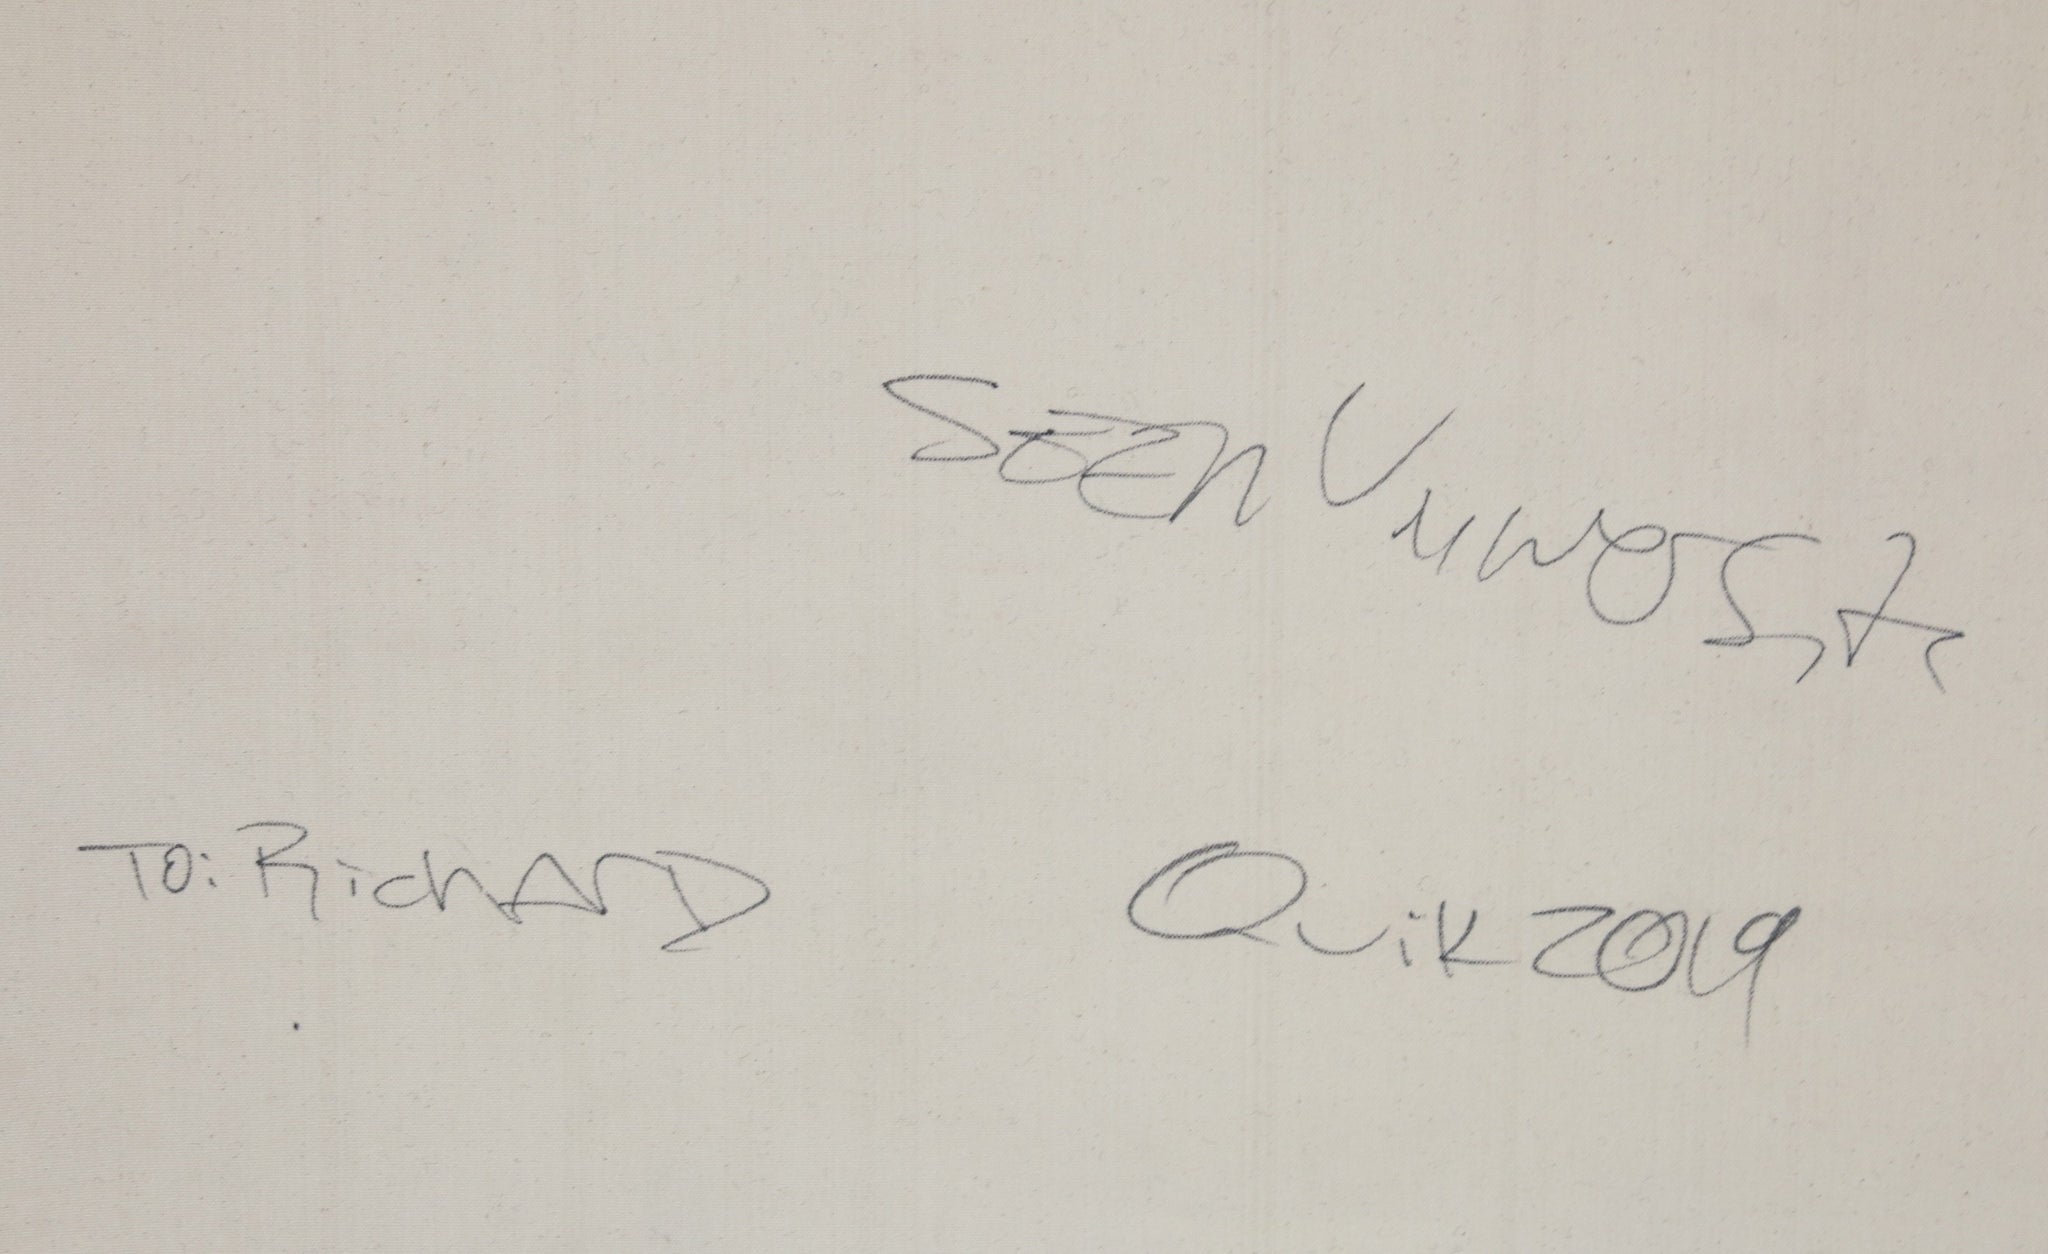 Seen
To: RicHARD
Quik 2019